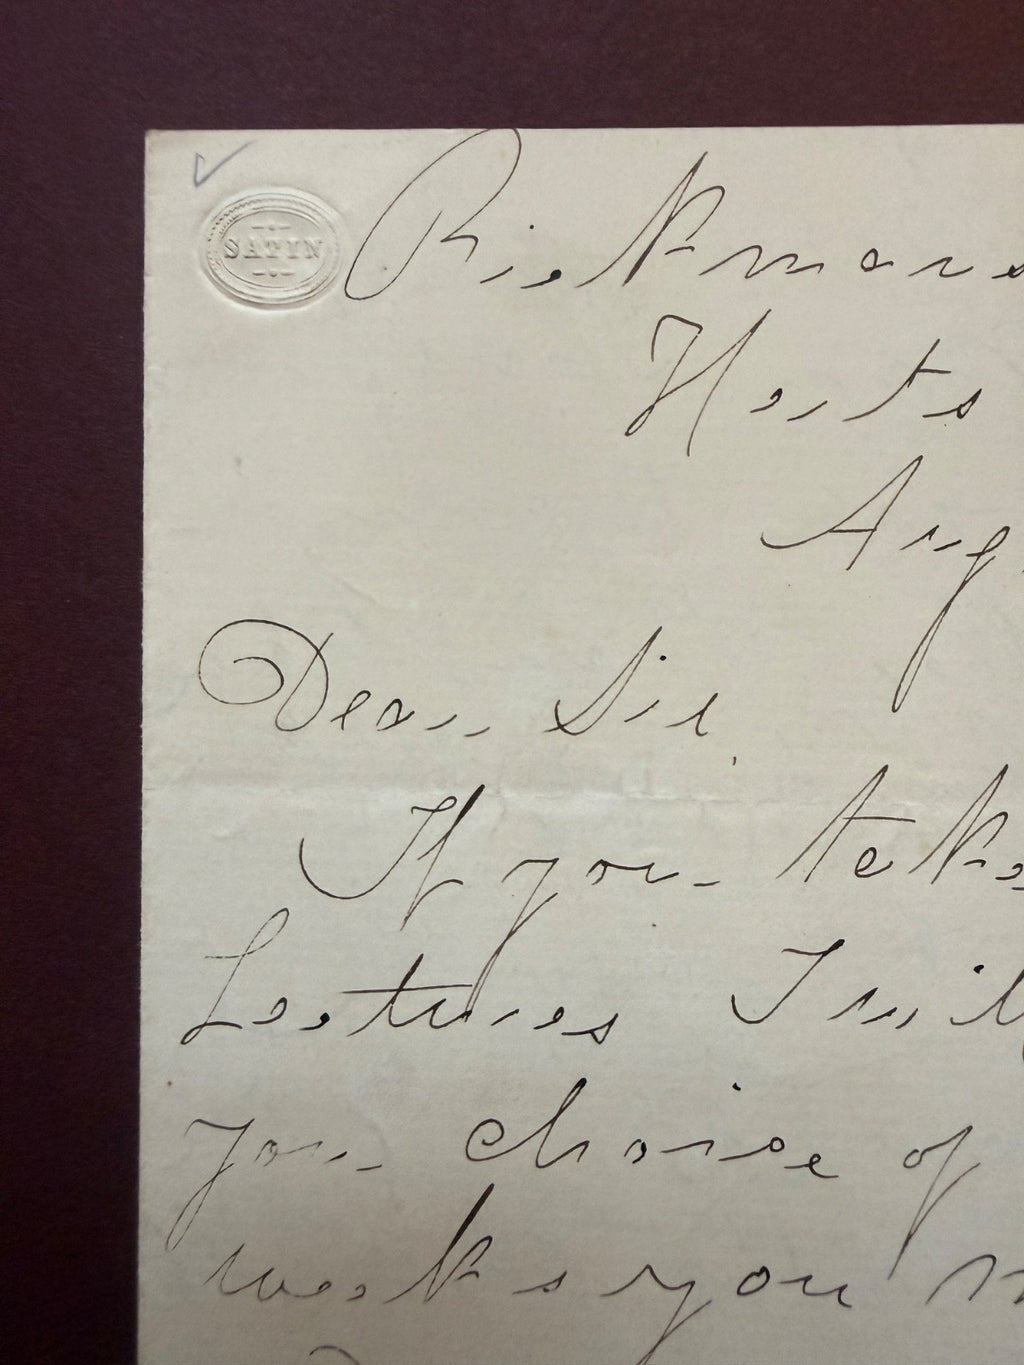 SATIN
Rickmans
Herts
Aug
Dear Sir,
If you take
Lectures I will
you choice of
weeks you